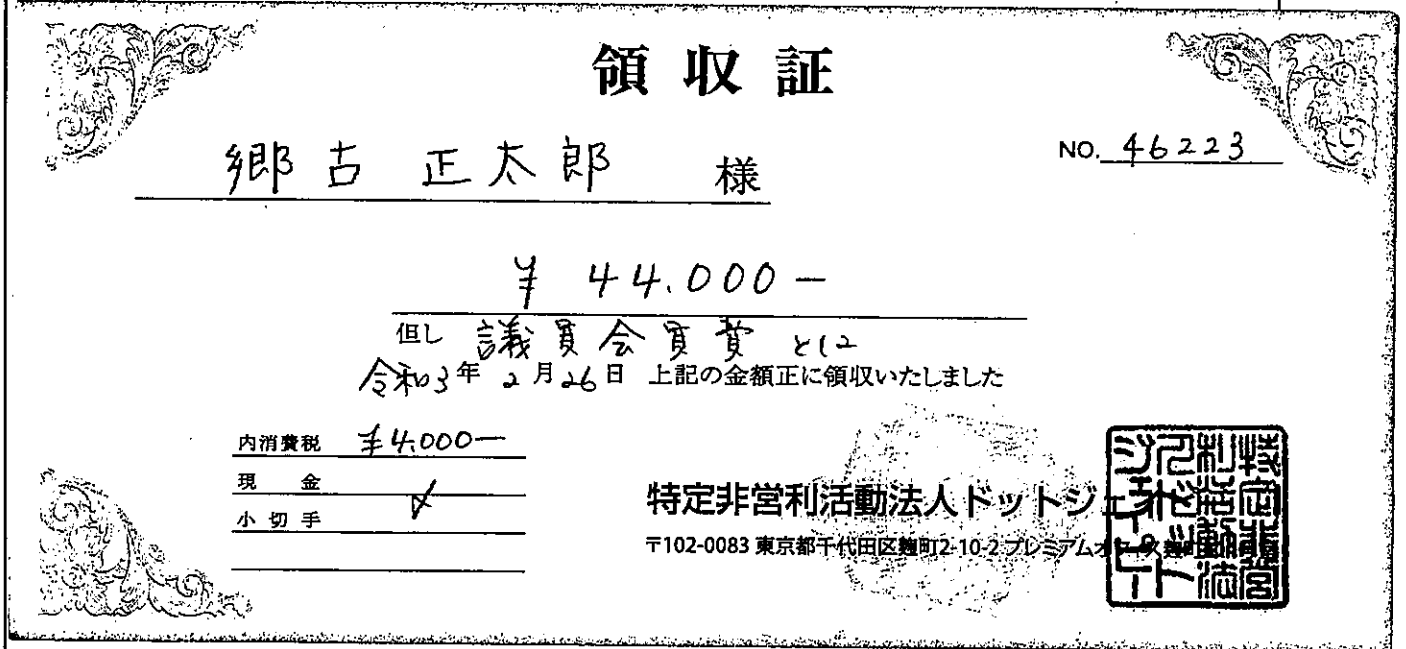 領収証
郷古 正太郎 様
NO. 46223
¥ 44.000−
但し 議員会員費 として
令和3年 2月26日 上記の金額正に領収いたしました
内消費税 ¥4.000−
現金
小切手
特定非営利活動法人ドットジェイピー
〒102-0083 東京都千代田区麹町2-10-2 プレミアムオフィス麹町
特定非営利活動法人ドットジェイピー